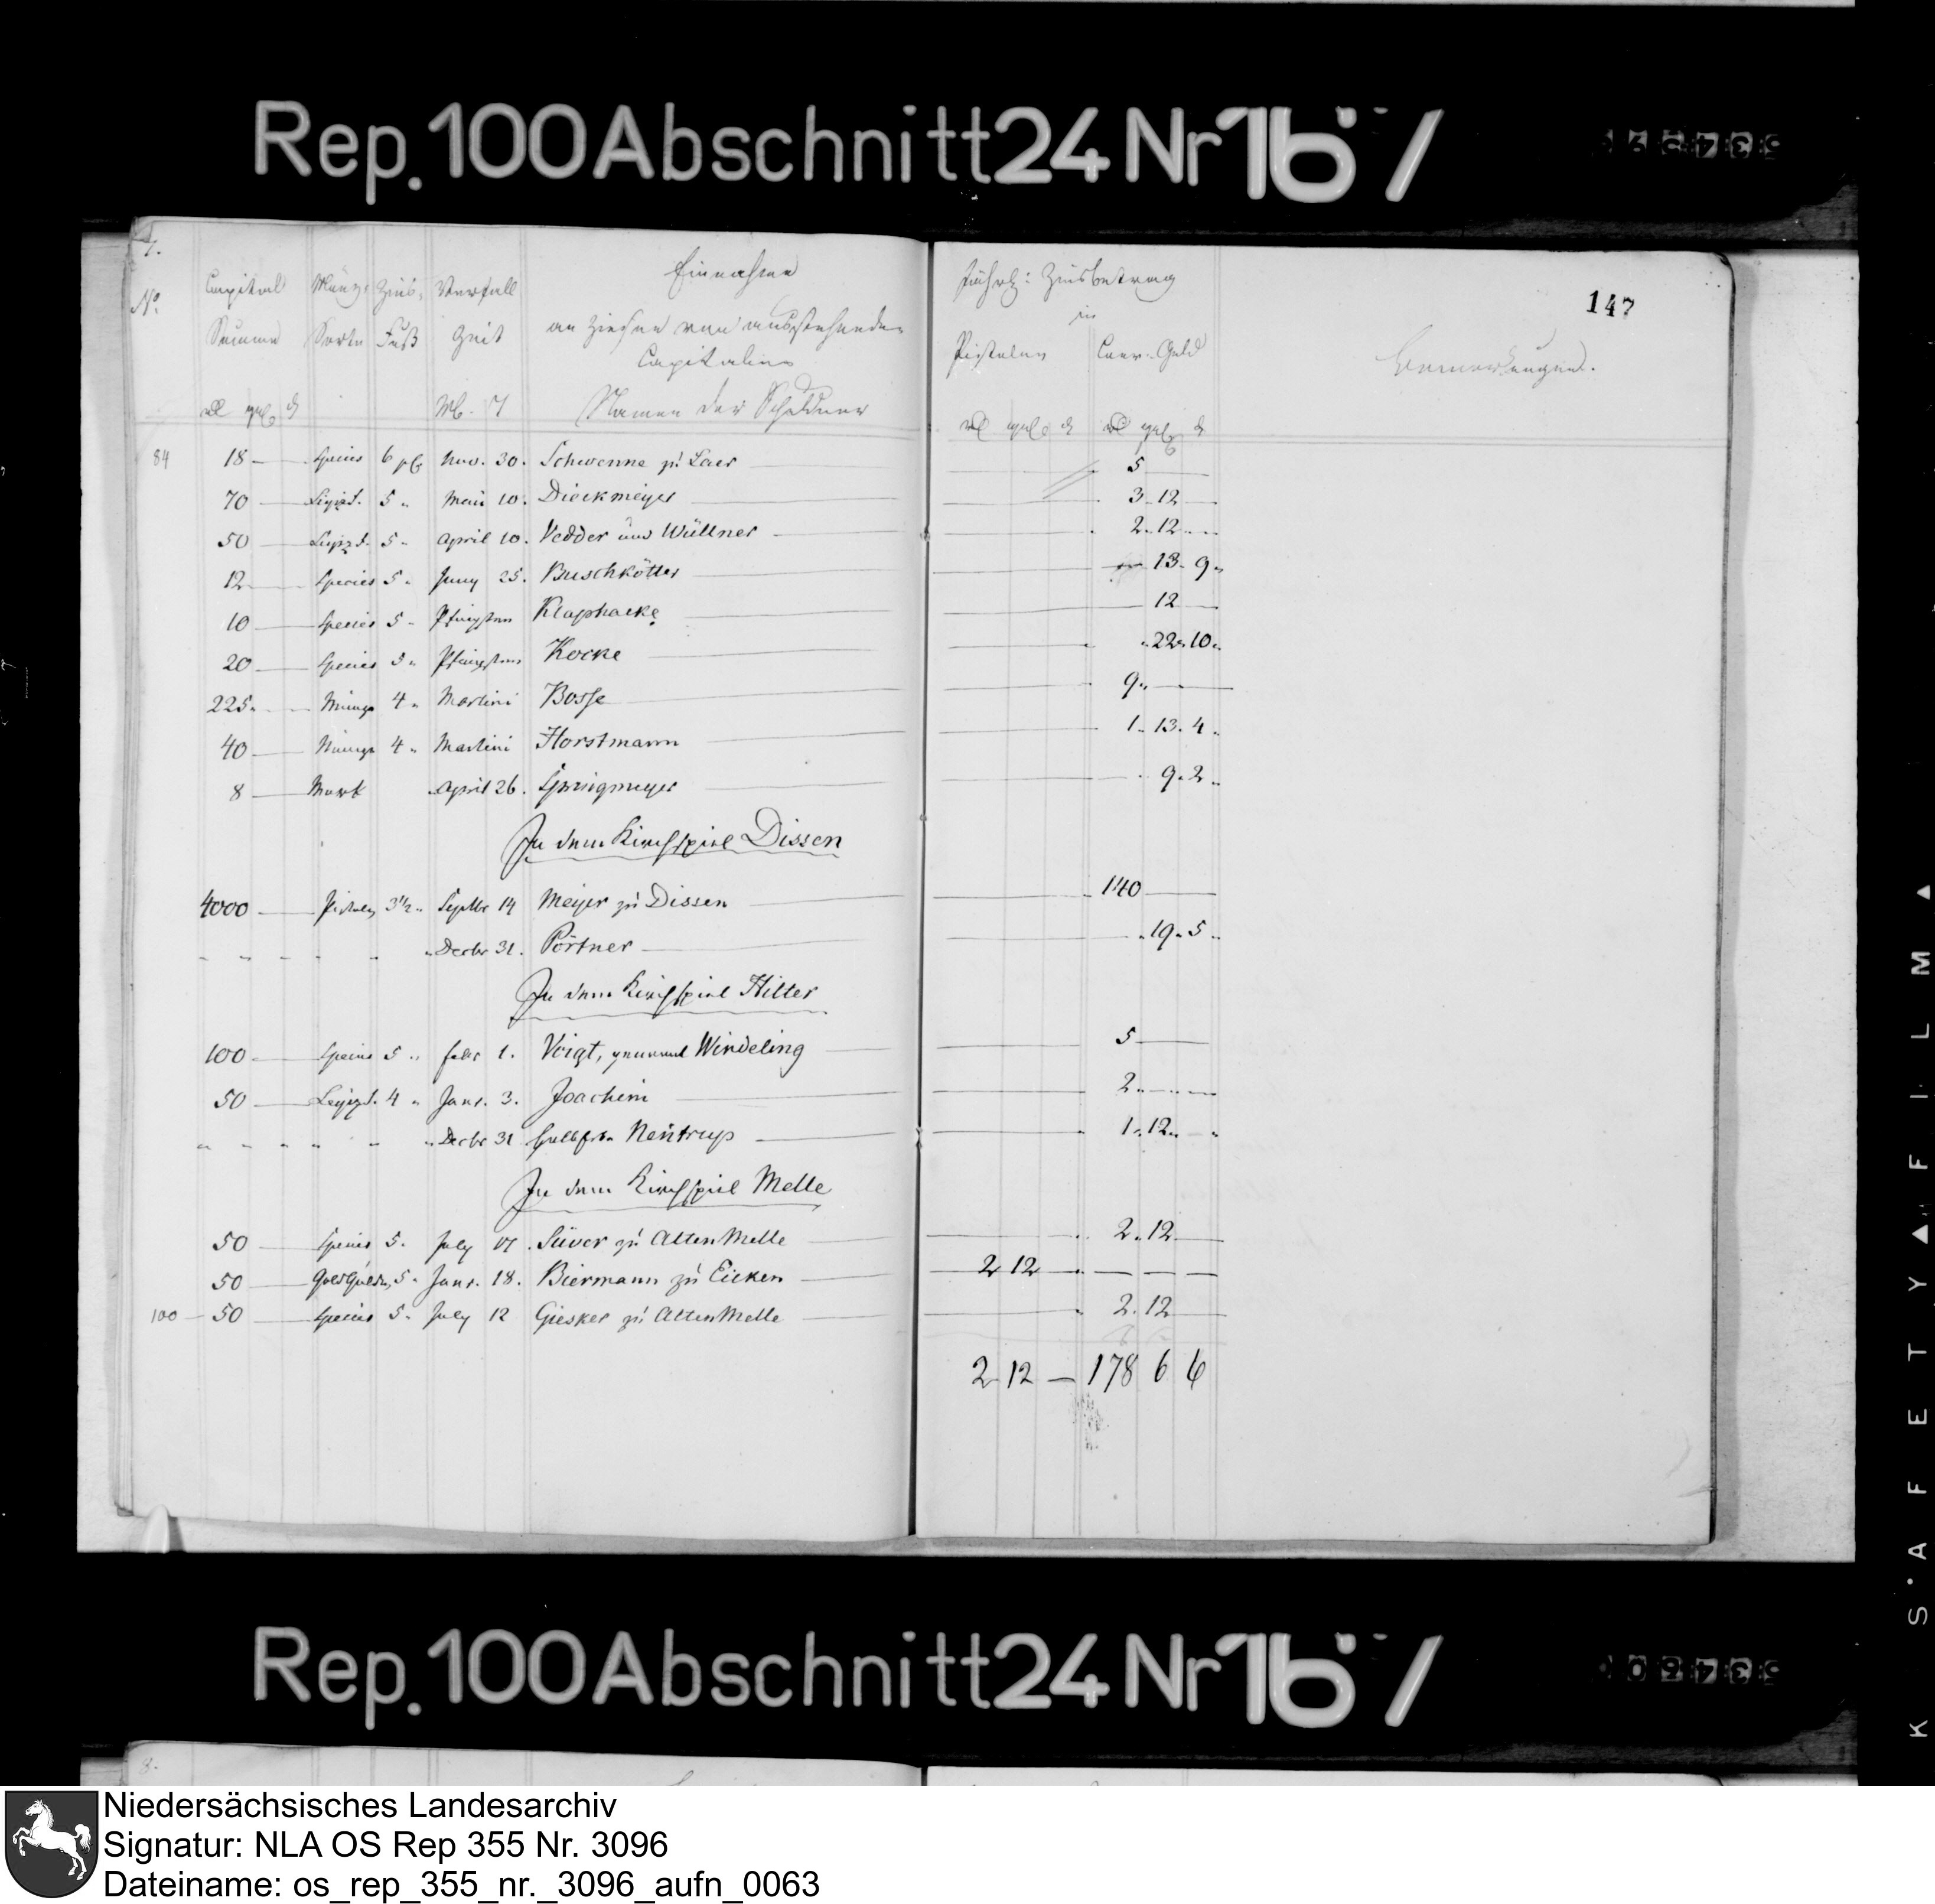 Rep.100Abschnitt24Nr167
7.
No. Capital Summe Münz- Sorte Zins- Fuß Verfall Zeit
Einnahme
an Zinsen von ausstehenden
Capitalien
Namen der Schuldner
Jährl: Zinsbetrag
in
Pistolen Cour. Geld
147
Bemerkungen.
84 18 — Species 6 pC Nov. 30. Schwenne zu Laer — 5 —
70 — 5 " Mai 10. Dieckmeyer — 3 12 —
50 — 5 " April 10. Vedder und Wüllner — 2. 12 "
12 — Species 5 " Juny 25. Buschkötter — 13. 9 "
10 — Species 5 " Pfingsten Klaphacke — 12 —
20 — Species 5 " Pfingsten Kocke — " 22 " 10 "
225 " — Münze 4 " Martini Bosse — 9 " —
40 — Münze 4 " Martini Horstmann — 1. 13. 4 "
8 — Mark April 26. Springmeyer — 9. 2 "
In dem Kirchspiel Dissen
4000 — Pistolen 3½ " Septbr 14 Meyer zu Dissen — 140 —
" " " " " " Decbr 31. Pörtner — " 19 " 5 "
In dem Kirchspiel Hilter
100 — Species 5 " Febr 1. Voigt, genannt Windeling — 5 —
50 — 4 " Janr. 3. Joachim — 2 " —
" " " " " " Decbr 31 Nentrup — 1. 12 " "
In dem Kirchspiel Melle
50 — Species 5. July 17. Süver zu Alten Melle — 2. 12 —
50 — Goldgulden, 5 " Janr. 18. Biermann zu Eicken — 2 12 — — —
100 — 50 — Species 5. July 12 Giesker zu Alten Melle — 2. 12
2 12 — 178 6 6
Rep.100Abschnitt24Nr167
8.
K S·A F E T Y ▲ F I L M ▲
Niedersächsisches Landesarchiv
Signatur: NLA OS Rep 355 Nr. 3096
Dateiname: os_rep_355_nr._3096_aufn_0063